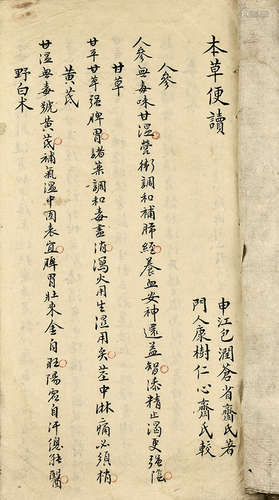 本草便讀
申江包潤蒼省齊氏著
門人康樹仁心齊氏較
人參
人參無毒味甘溫營衛調和補肺經養血安神還益智添精止渴更強陰
甘草
甘平甘草強脾胃諸藥調和毒盡消瀉火用生溫用炙莖中淋痛必須梢
黃芪
甘溫無毒號黃芪補氣溫中固表宜脾胃壯來金自旺陽虛自汗總能醫
野白术